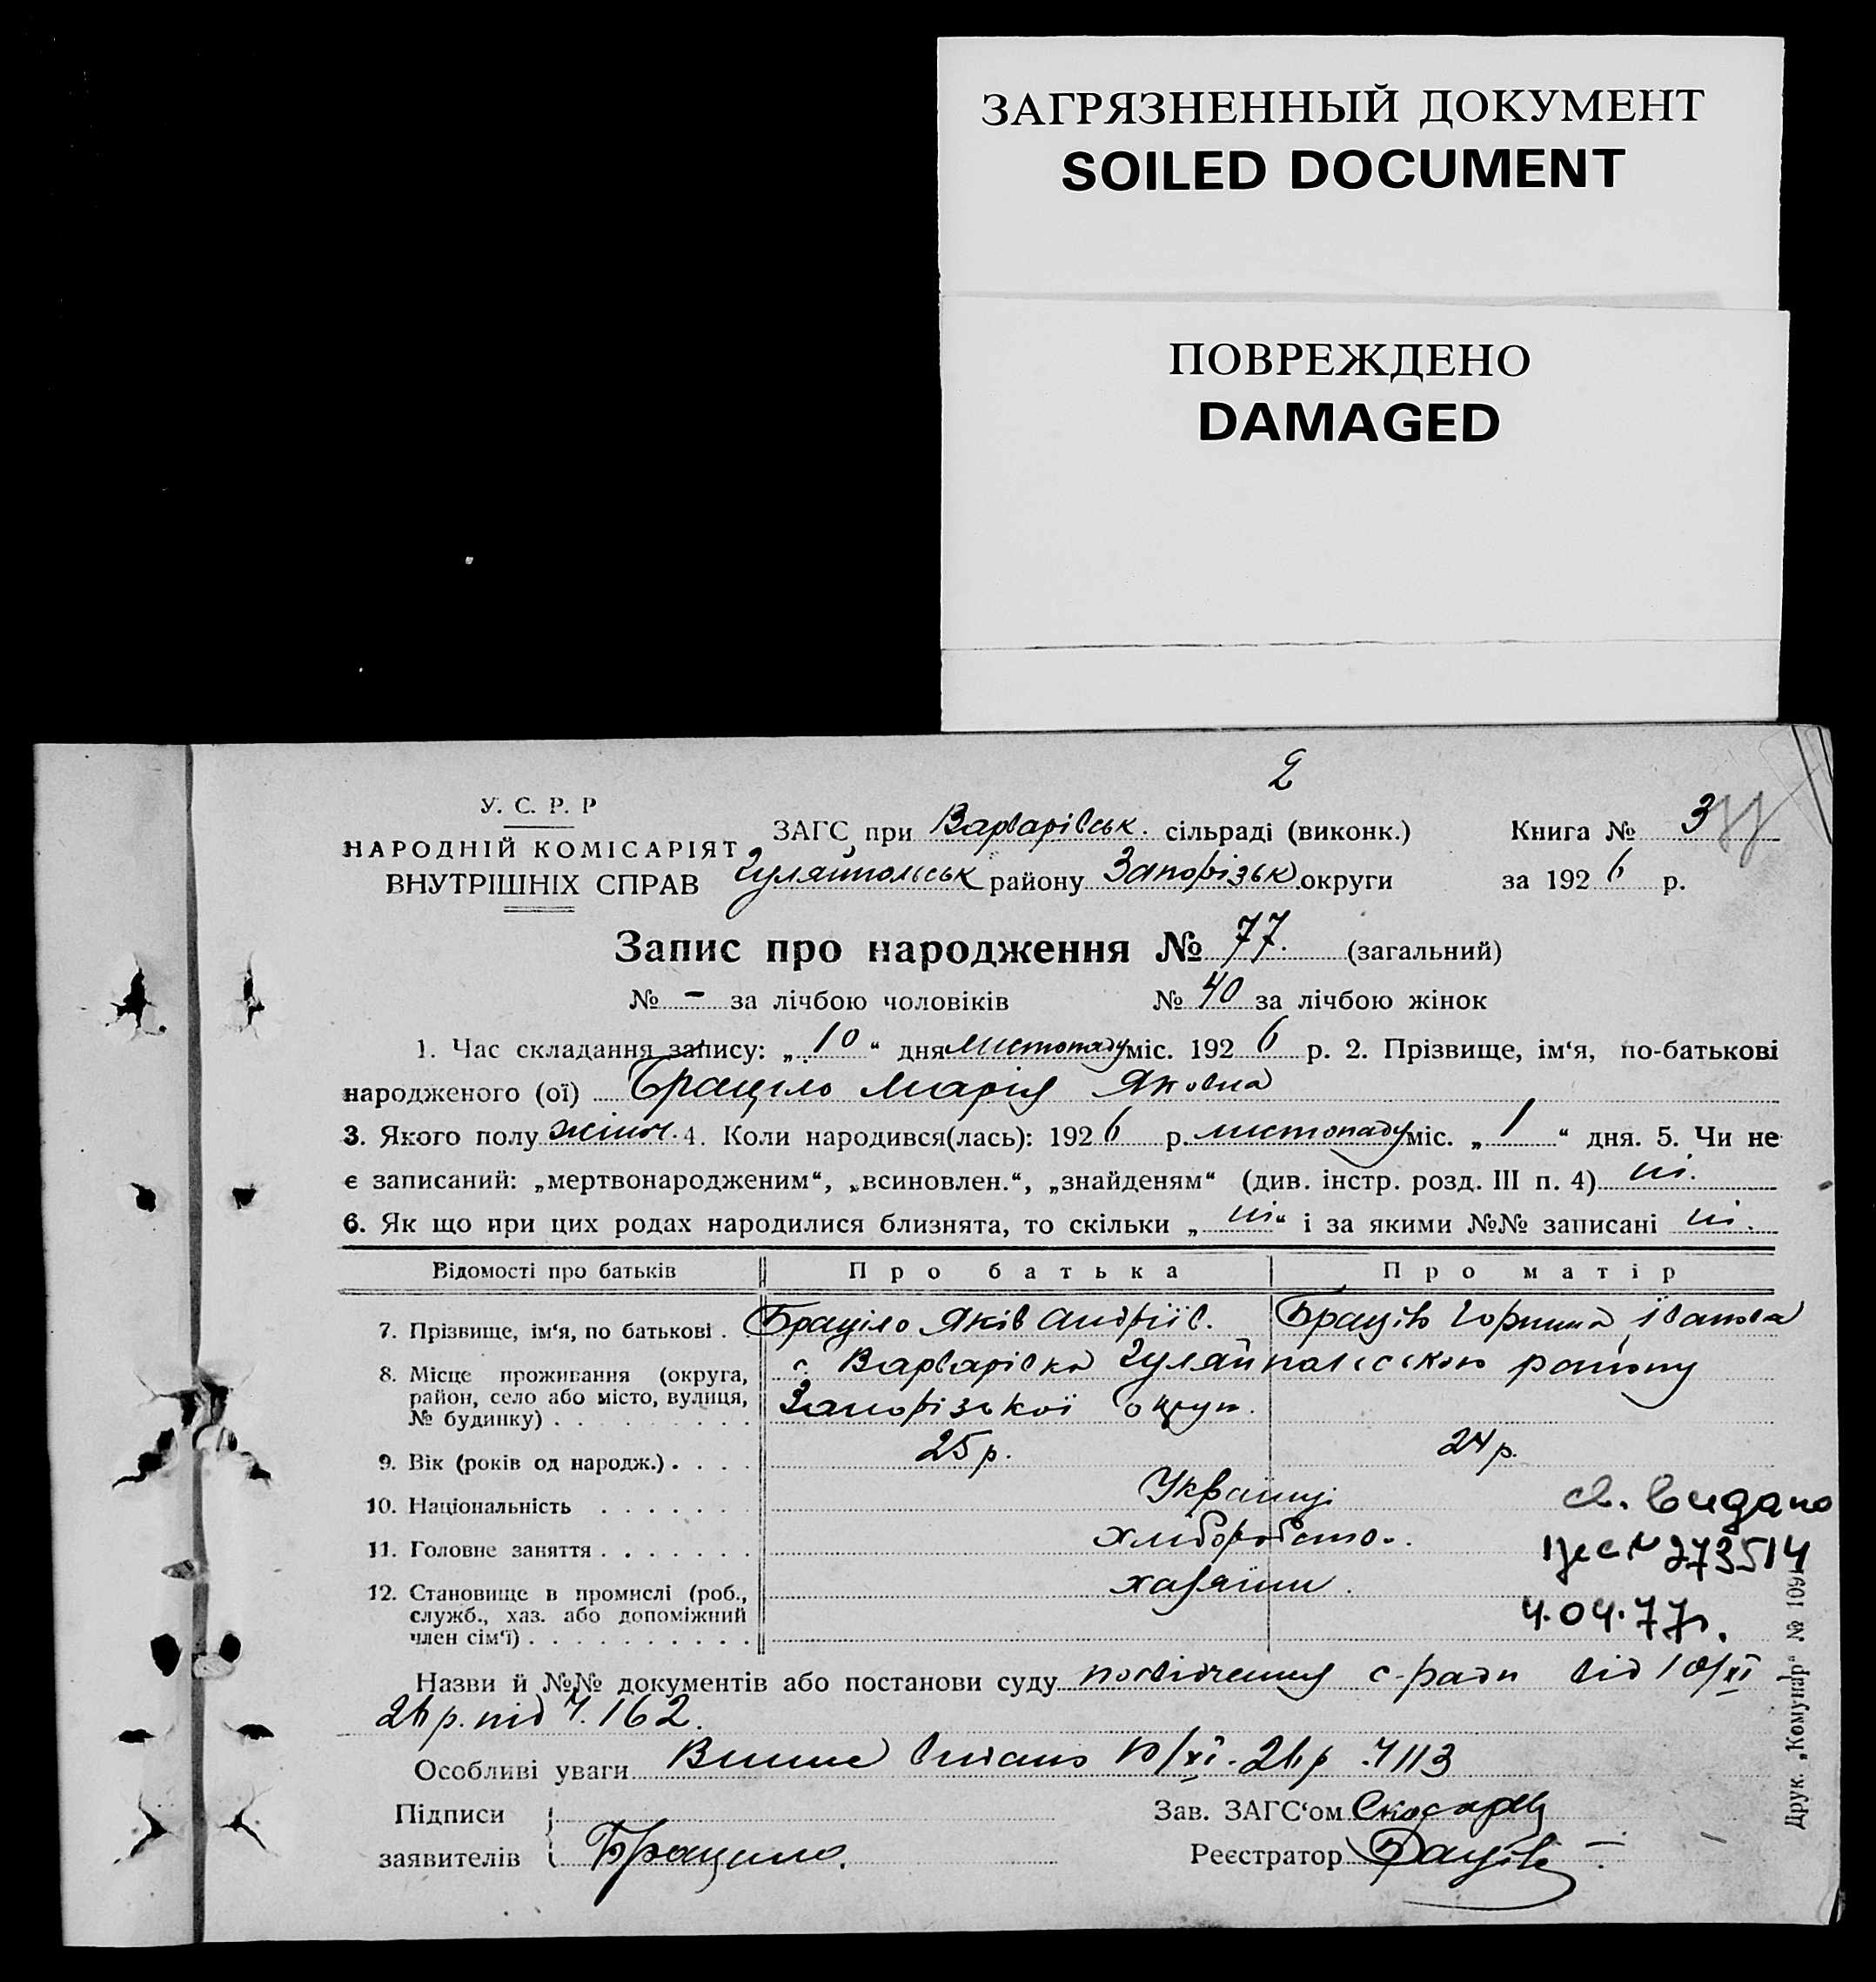 ЗАГРЯЗНЕННЫЙ ДОКУМЕНТ
SOILED DOCUMENT
ПОВРЕЖДЕНО
DAMAGED
2
У. С. Р. Р
НАРОДНІЙ КОМІСАРІЯТ
ВНУТРІШНІХ СПРАВ
ЗАГС при Варварівськ. сільраді (виконк.)
Гуляйпольськ району Запорізьк округи
Книга № 3
за 1926 р.
Запис про народження № 77. (загальний)
№ - за лічбою чоловіків № 40 за лічбою жінок
1. Час складання запису: „ 10 “ дня листопаду міс. 1926 р. 2. Прізвище, ім‘я, по-батькові
народженого (ої) Браціло Марія Яковна
3. Якого полу жіноч. 4. Коли народився(лась): 1926 р. листопаду міс. „ 1 “ дня. 5. Чи не
є записаний: „мертвонародженим“, „всиновлен.“, „знайденям“ (див. інстр. розд. III п. 4) ні.
6. Як що при цих родах народилися близнята, то скільки „ ні “ і за якими №№ записані ні.
Відомості про батьків Про батька Про матір
7. Прізвище, ім‘я, по батькові . Браціло Яків Андріїв. Браціло Горпина Іванова
8. Місце проживання (округа, район, село або місто, вулиця, № будинку) . с. Варварівка Гуляйпольського району
Запорізької округ.
9. Вік (років од народж.) . 25 р. 24 р.
10. Національність Українці
11. Головне заняття хліборобство.
12. Становище в промислі (роб., служб., хаз. або допоміжний член сім‘ї) хазяїни.
св. видано
№ 273514
4.04.77р.
Назви й №№ документів або постанови суду посвідчення с-ради від 10/XI
26 р. під ч. 162.
Особливі уваги видано 10/XI-26р ч 113
Підписи
заявителів Брацило.
Зав. ЗАГС‘ом
Реєстратор
Друк. „Комунар“ № 109